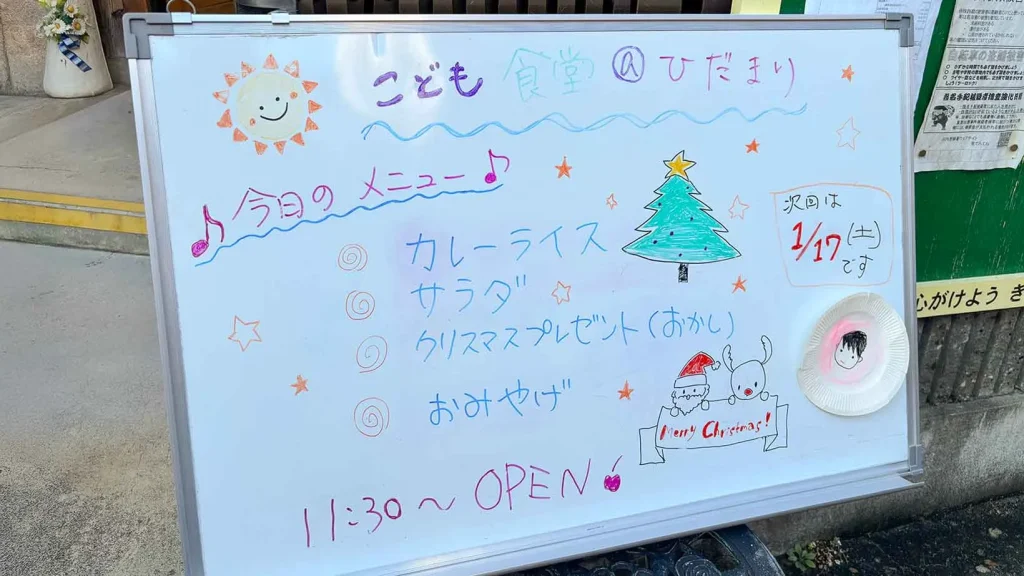 こども 食堂 @ ひだまり
今日の メニュー
カレーライス
サラダ
クリスマスプレゼント(おかし)
おみやげ
11:30〜 OPEN
次回は
1/17(土)
です
Merry Christmas!
心がけよう